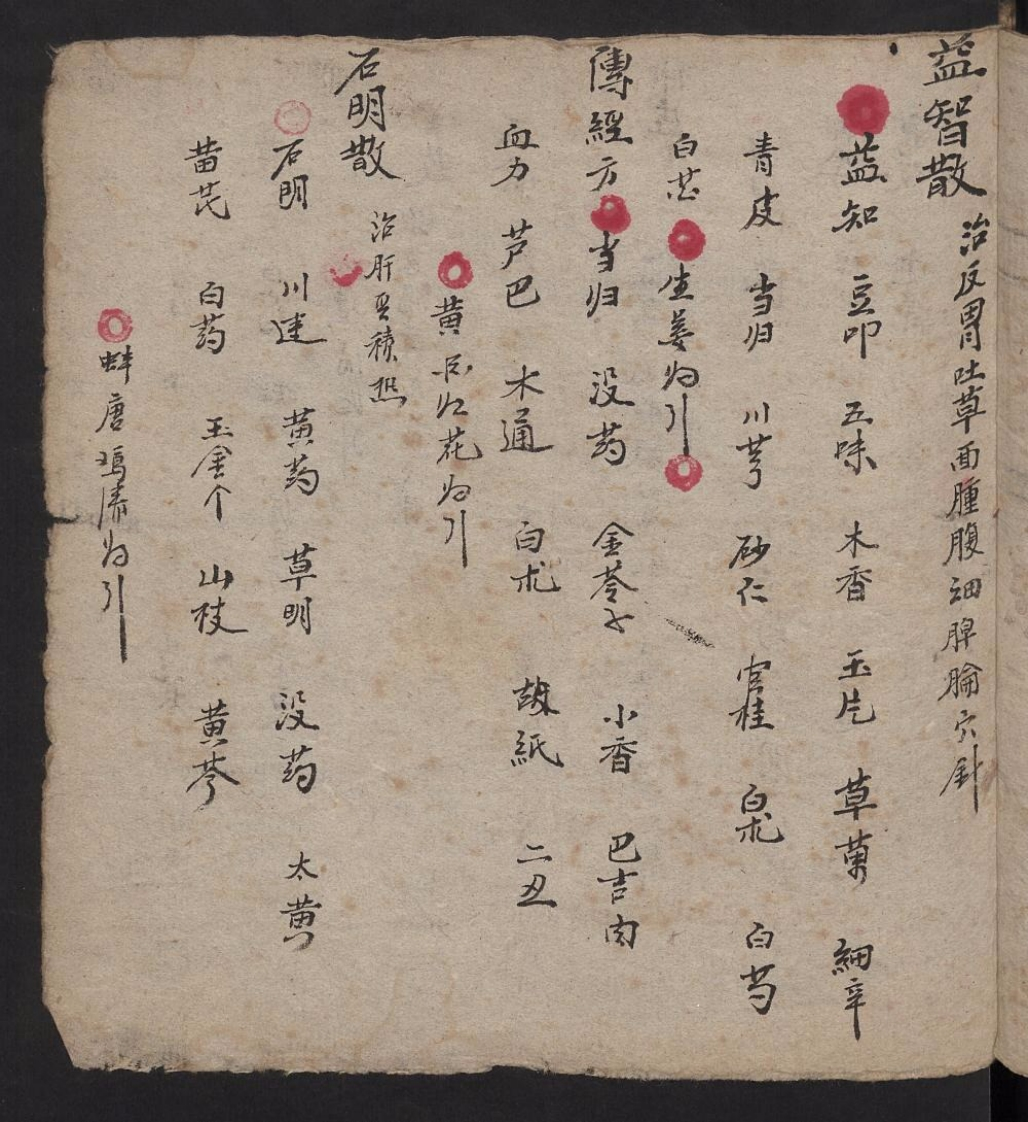 益智散 治反胃吐草面腫腹细脾腧穴針
益知 豆叩 五味 木香 玉片 草菓 細辛
青皮 当归 川芎 砂仁 官桂 白朮 白芍
白芷 生姜为引
傳經方 当归 没药 金苓子 小香 巴吉肉
血力 芦巴 木通 白朮 故紙 二丑
黄 红花为引
石明散 治肝 積热
石明 川连 黄药 草明 没药 太黄
黄芪 白药 玉金个 山枝 黄芩
蚌唐 为引